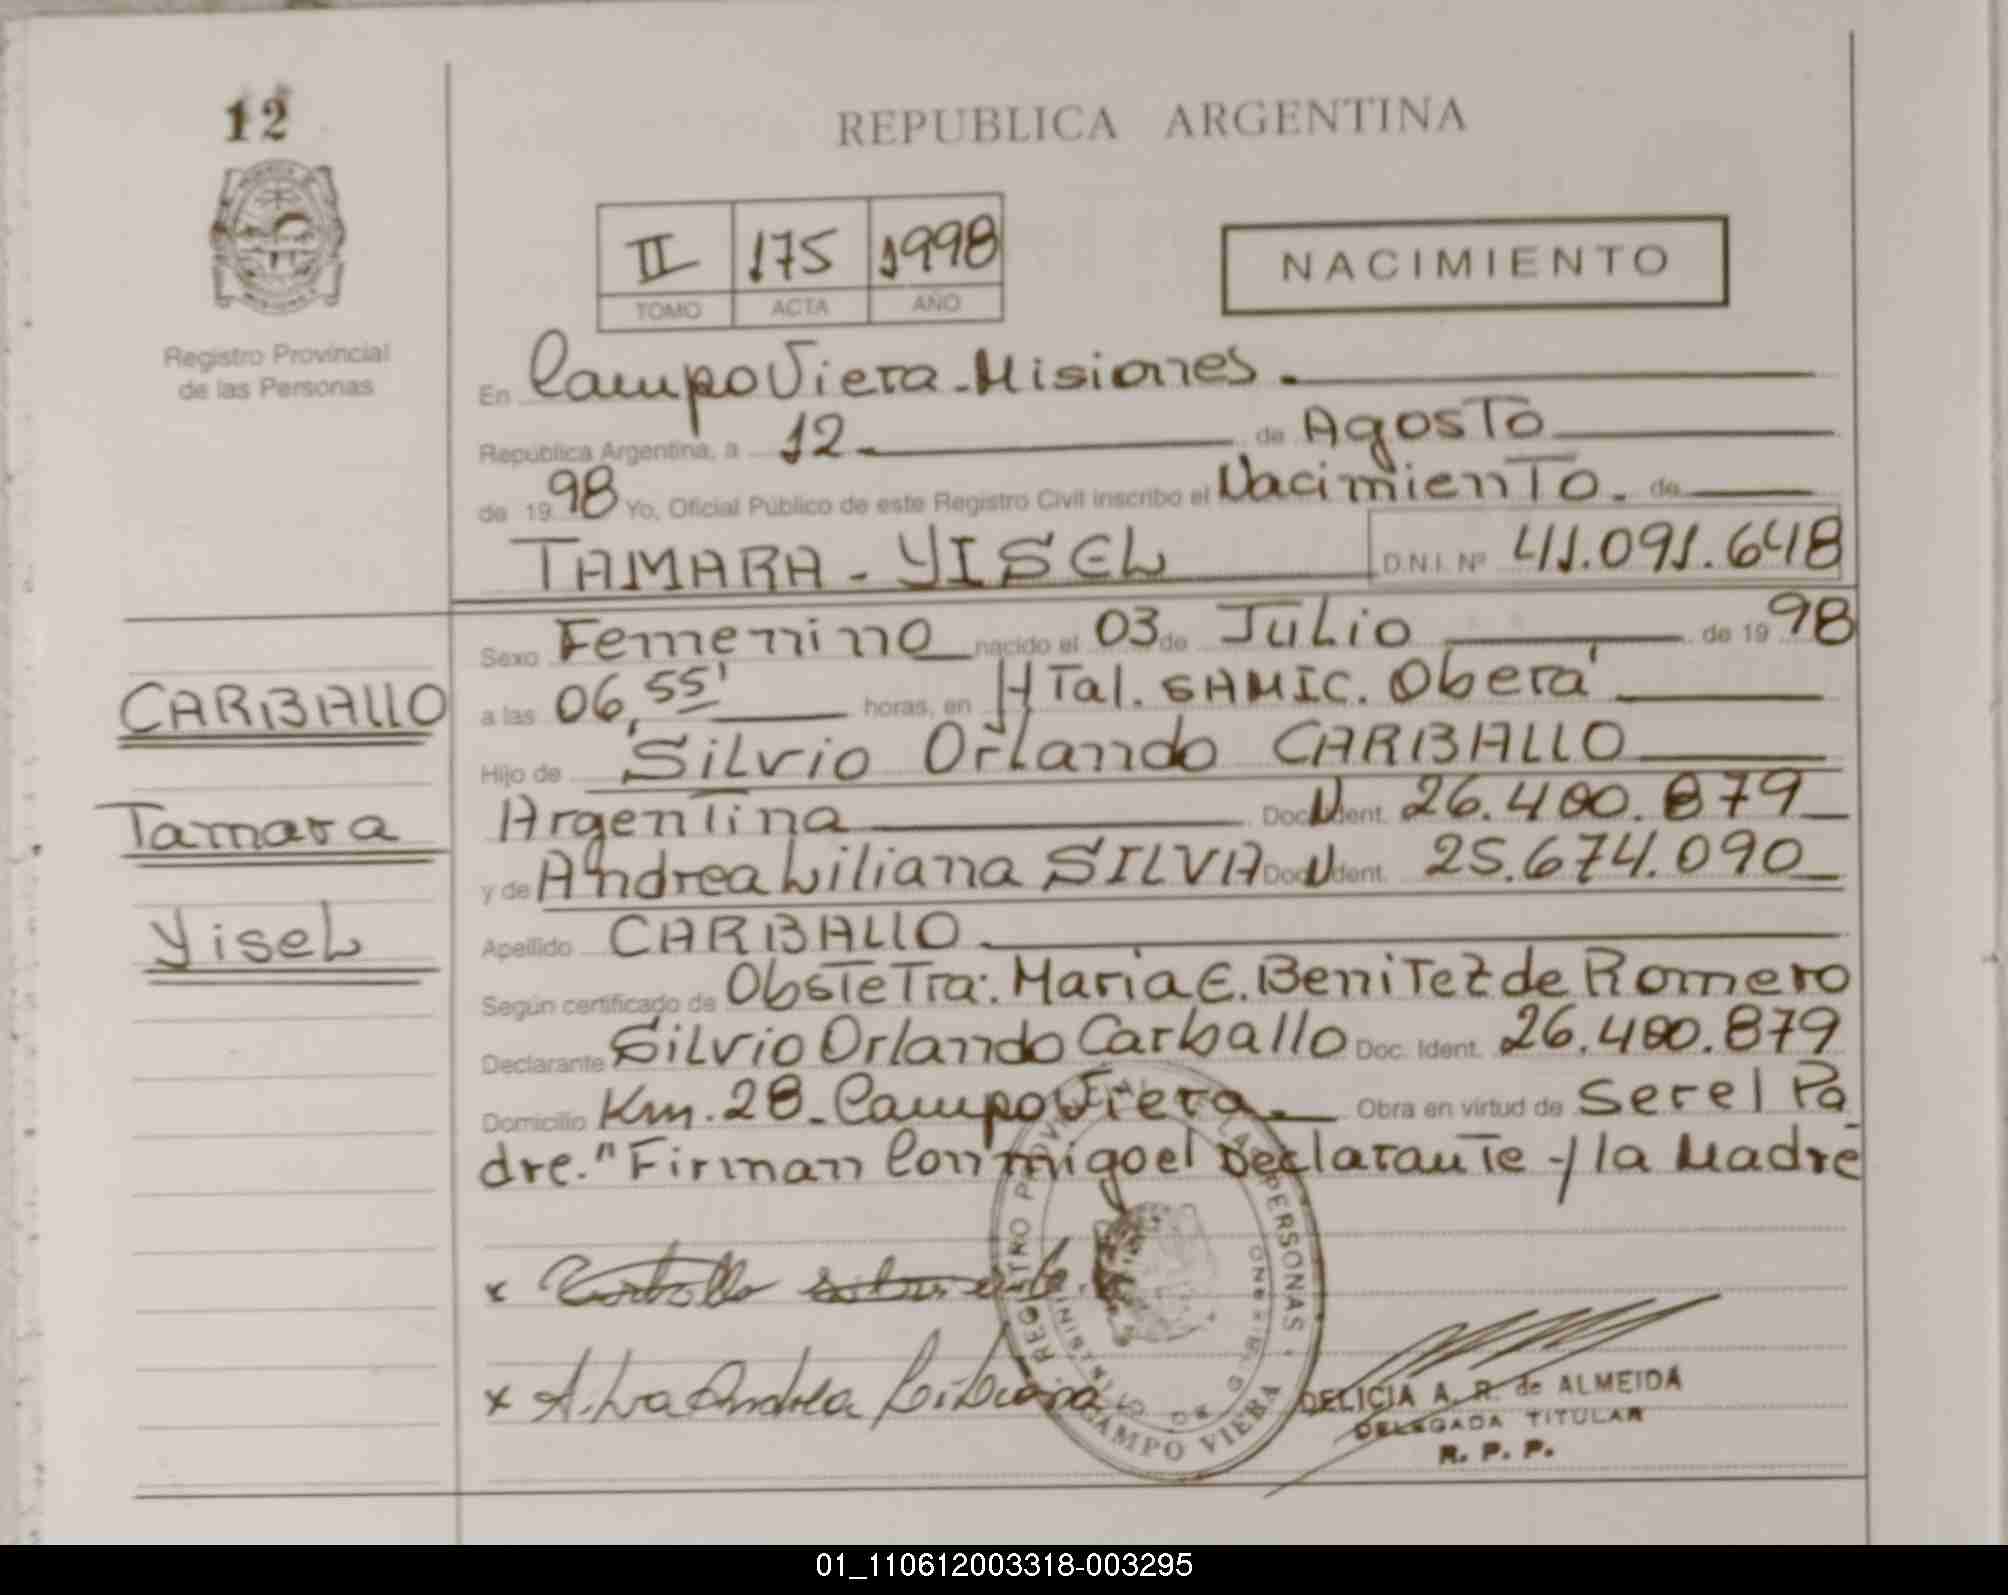 12
REPUBLICA ARGENTINA
II 175 1998
TOMO ACTA AÑO
NACIMIENTO
Registro Provincial
de las Personas
En Campo Viera - Misiones.
República Argentina, a 12 de Agosto
de 1998 Yo, Oficial Público de este Registro Civil inscribo el Nacimiento. de
TAMARA - YISEL D.N.I. Nº 41.091.648
Sexo Femenino nacido el 03 de Julio de 1998
CARBALLO
a las 06,55' horas, en HTal. SAMIC. Oberá
Hijo de Silvio Orlando CARBALLO
Tamara
Argentina Doc. Ident. 26.400.879
y de Andrea Liliana SILVA Doc. Ident. 25.674.090
Yisel
Apellido CARBALLO
Según certificado de Obstetra: Maria E. Benitez de Romero
Declarante Silvio Orlando Carballo Doc. Ident. 26.400.879
Domicilio Km. 28 - Campo Viera Obra en virtud de Ser el Pa
dre." Firman Conmigo el Declarante y la Madre
x Carballo
x Silva Andrea Liliana
REGISTRO PROVINCIAL DE LAS PERSONAS
CAMPO VIERA
DELICIA A. R. de ALMEIDA
DELEGADA TITULAR
R. P. P.
01_110612003318-003295